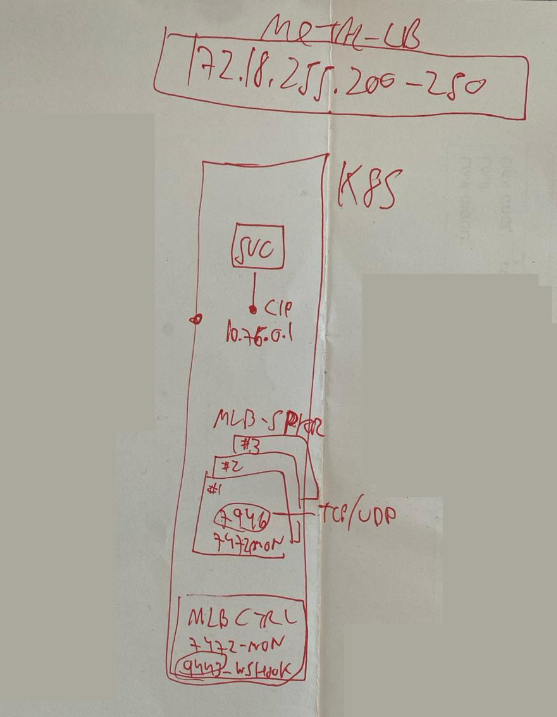 METAL-LB
172.18.255.200-250
K8S
SVC
CIP
10.76.0.1
MLB-SPKR
#3
#2
#1
7946
TCP/UDP
7472MON
MLB CTRL
7472-MON
9443-WSHOOK